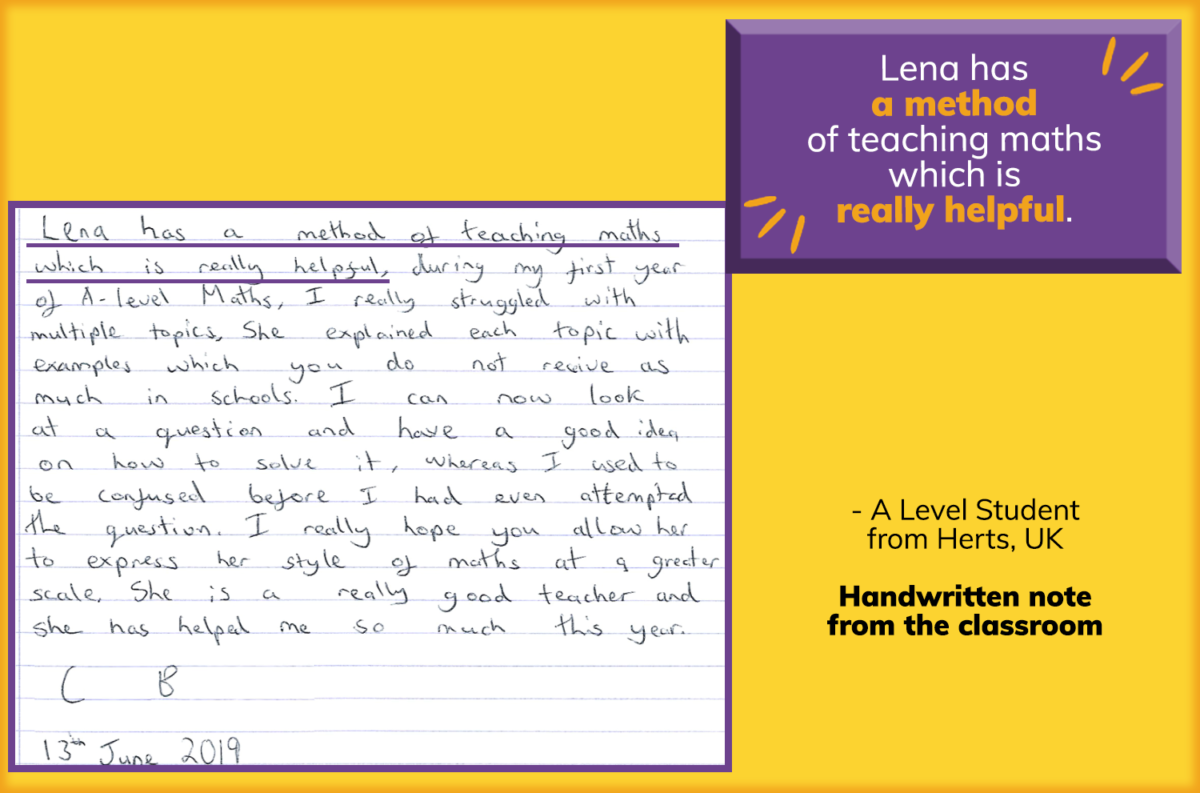 Lena has
a method
of teaching maths
which is
really helpful.
Lena has a method of teaching maths
which is really helpful, during my first year
of A-level Maths, I really struggled with
multiple topics, She explained each topic with
examples which you do not recive as
much in schools. I can now look
at a question and have a good idea
on how to solve it, whereas I used to
be confused before I had even attempted
the question. I really hope you allow her
to express her style of maths at a greater
scale. She is a really good teacher and
she has helped me so much this year.
C B
13th June 2019
- A Level Student
from Herts, UK
Handwritten note
from the classroom